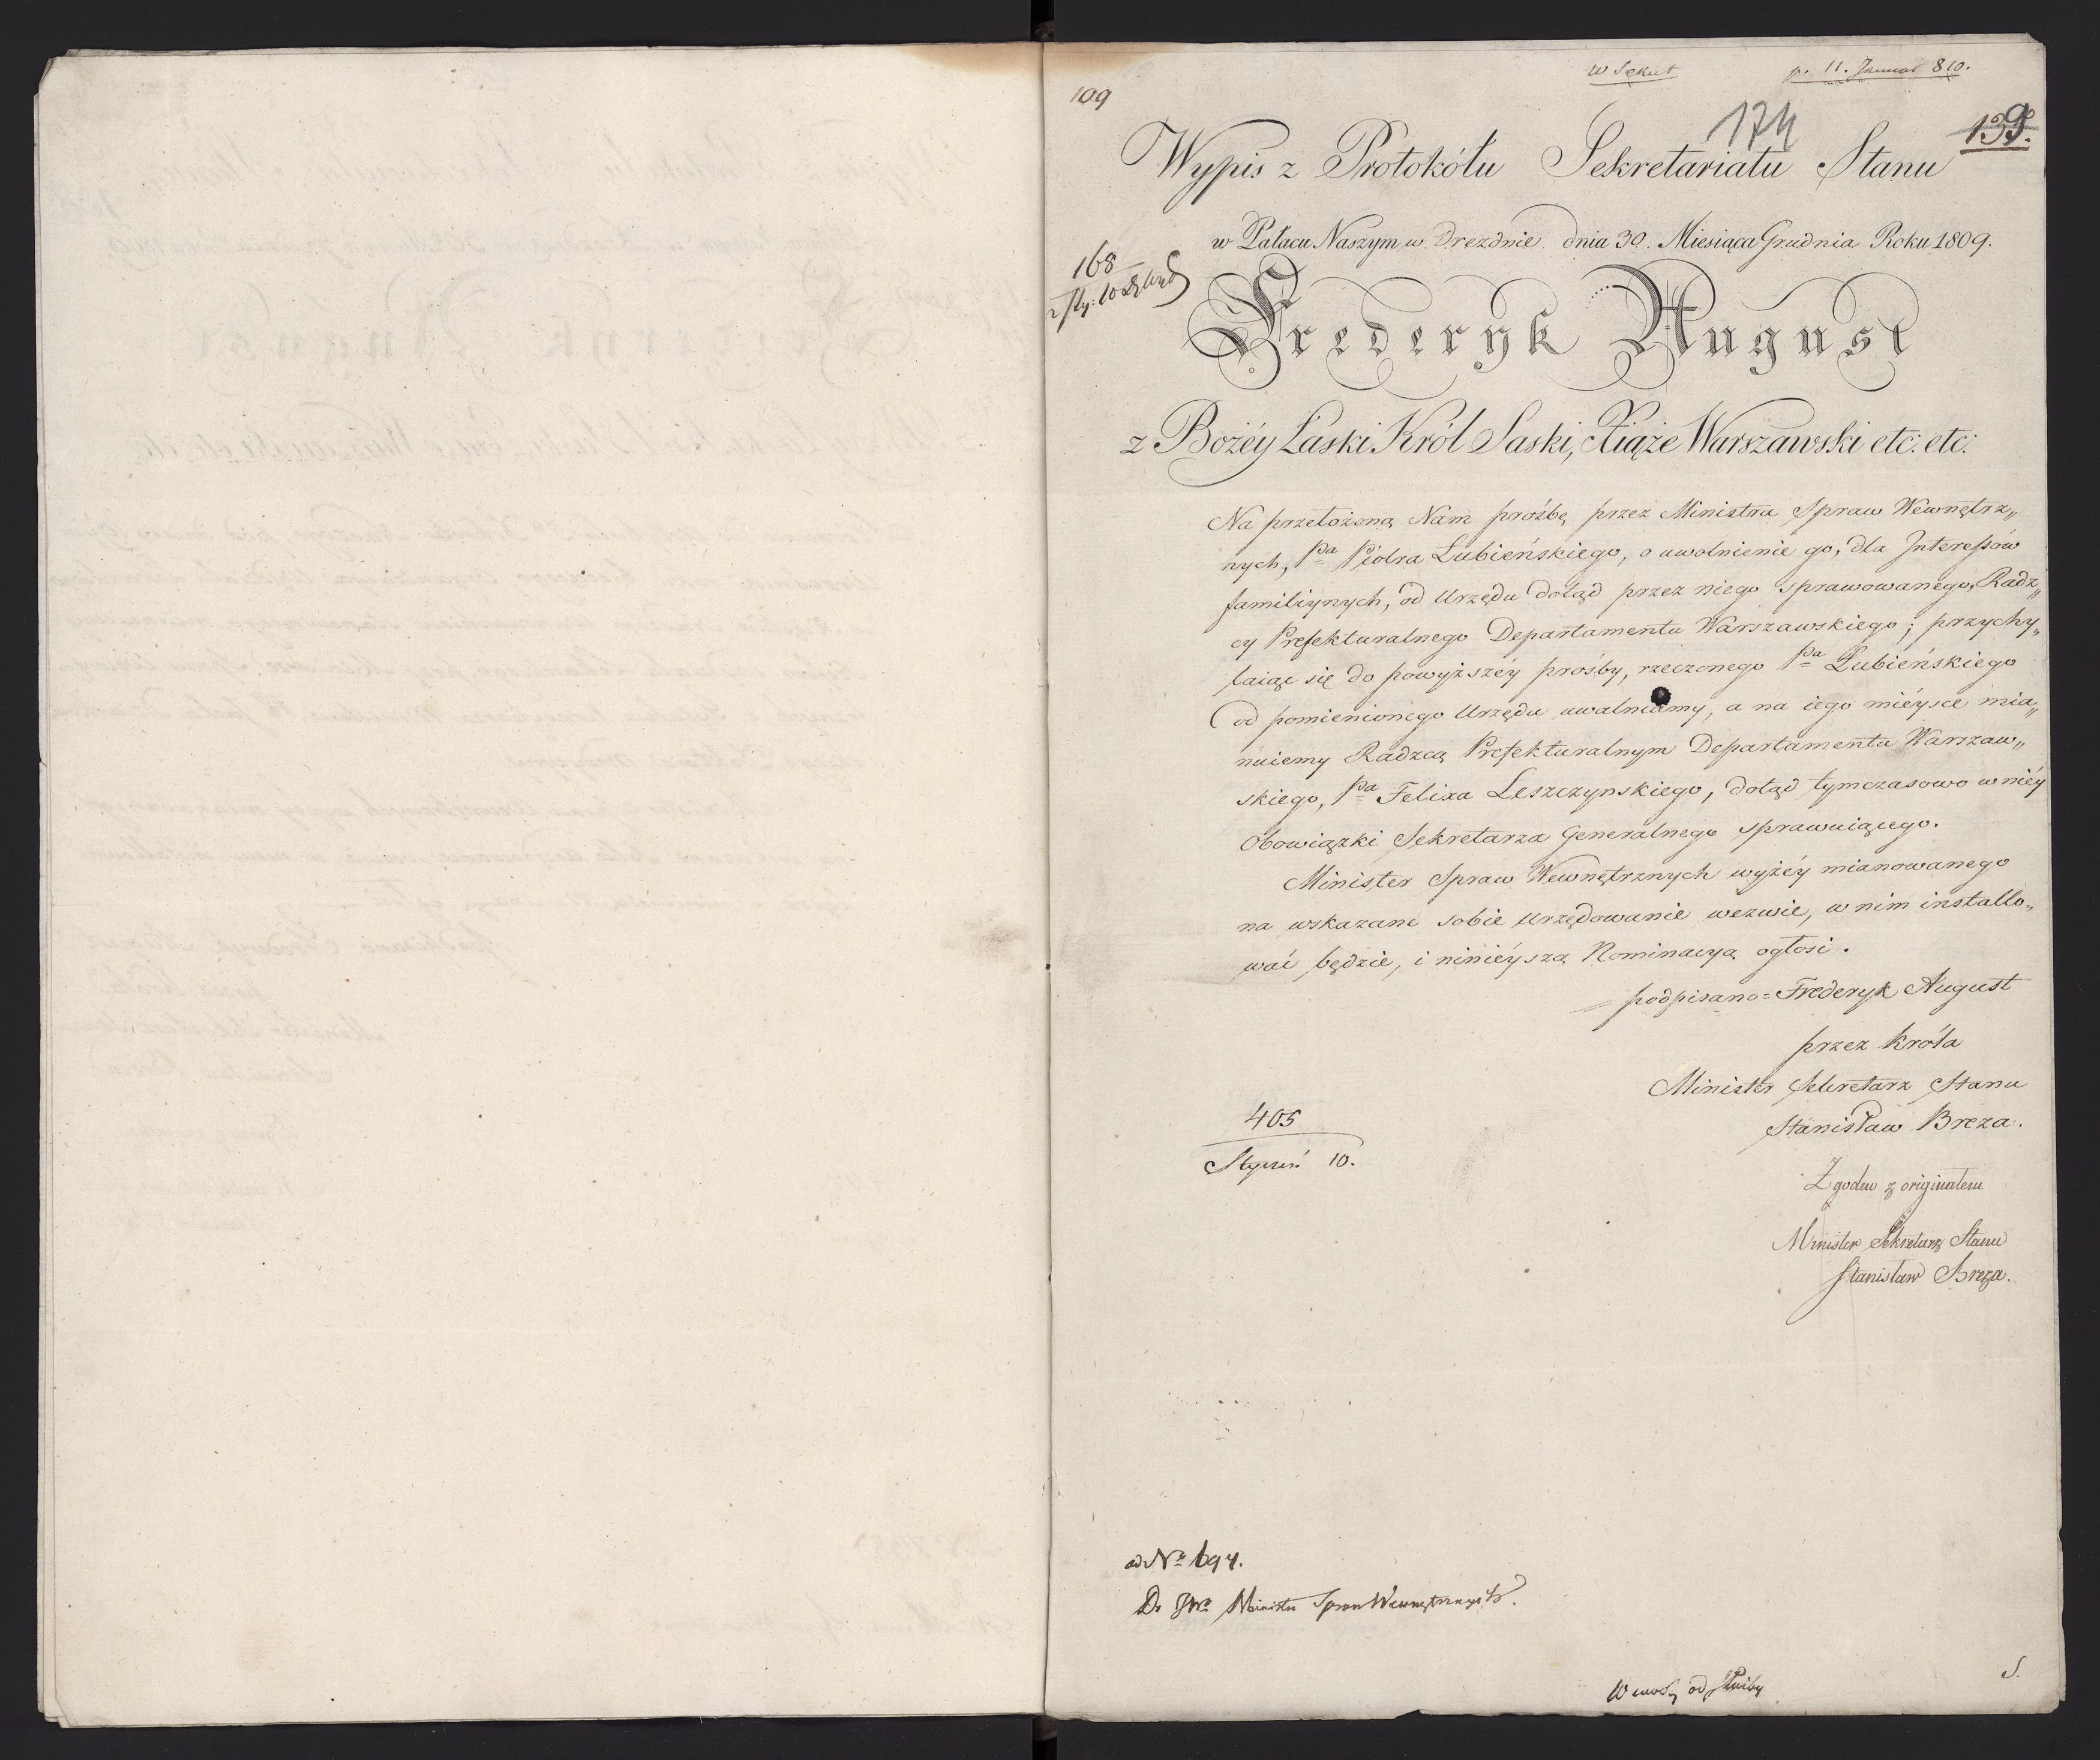 109
p. 11. Januar 810.
174
139.
Wypis z Protokółu Sekretariatu Stanu
w Pałacu Naszym w Dreznie dnia 30. Miesiąca Grudnia Roku 1809.
168
Fryderyk August
z Bożéy Łaski Król Saski, Xiąże Warszawski etc: etc:
Na przełożoną Nam prośbę przez Ministra Spraw Wewnętrz„
nych, Pa Piotra Łubieńskiego, o uwolnienie go, dla Interessów
familiynych, od Urzędu dotąd przez niego sprawowanego, Radz„
cy Prefekturalnego Departamentu Warszawskiego; przychy„
laiąc się do powyższéy prośby, rzeczonego Pa Łubieńskiego
od pomienionego Urzędu uwalniamy, a na iego miéysce mia„
nuiemy Radzcą Prefekturalnym Departamentu Warszaw„
skiego, Pa Felixa Leszczynskiego, dotąd tymczasowo w niéy
Obowiązki Sekretarza Generalnego sprawuiącego.
Minister Spraw Wewnętrznych wyżéy mianowanego
na wskazane sobie Urzędowanie wezwie, w nim installo„
wać będzie, i niniéyszą Nominacyą ogłosi.
podpisano = Fryderyk August
przez Króla
Minister Sekretarz Stanu
Stanisław Breza.
405
Styczeń 10.
Zgodno z originałem
Minister Sekretarz Stanu
Stanisław Breza.
ad No 694.
Do JWo Ministra Spraw Wewnętrznych.
od służby
S.